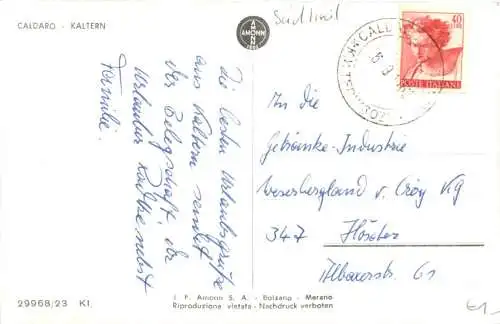 CALDARO - KALTERN
AMONN
Südtirol
40
LIRE
POSTE ITALIANE
Die besten Urlaubsgrüße
aus Kaltern sendet
der Belegschaft, der
Urlauber nebst
Familie.
An die
Getränke-Industrie
Weserbergland v. Croy KG
347 Höxter
Albaxerstr. 61
29968/23 Kl.
J. F. Amonn S. A. - Bolzano - Merano
Riproduzione vietata - Nachdruck verboten
€1